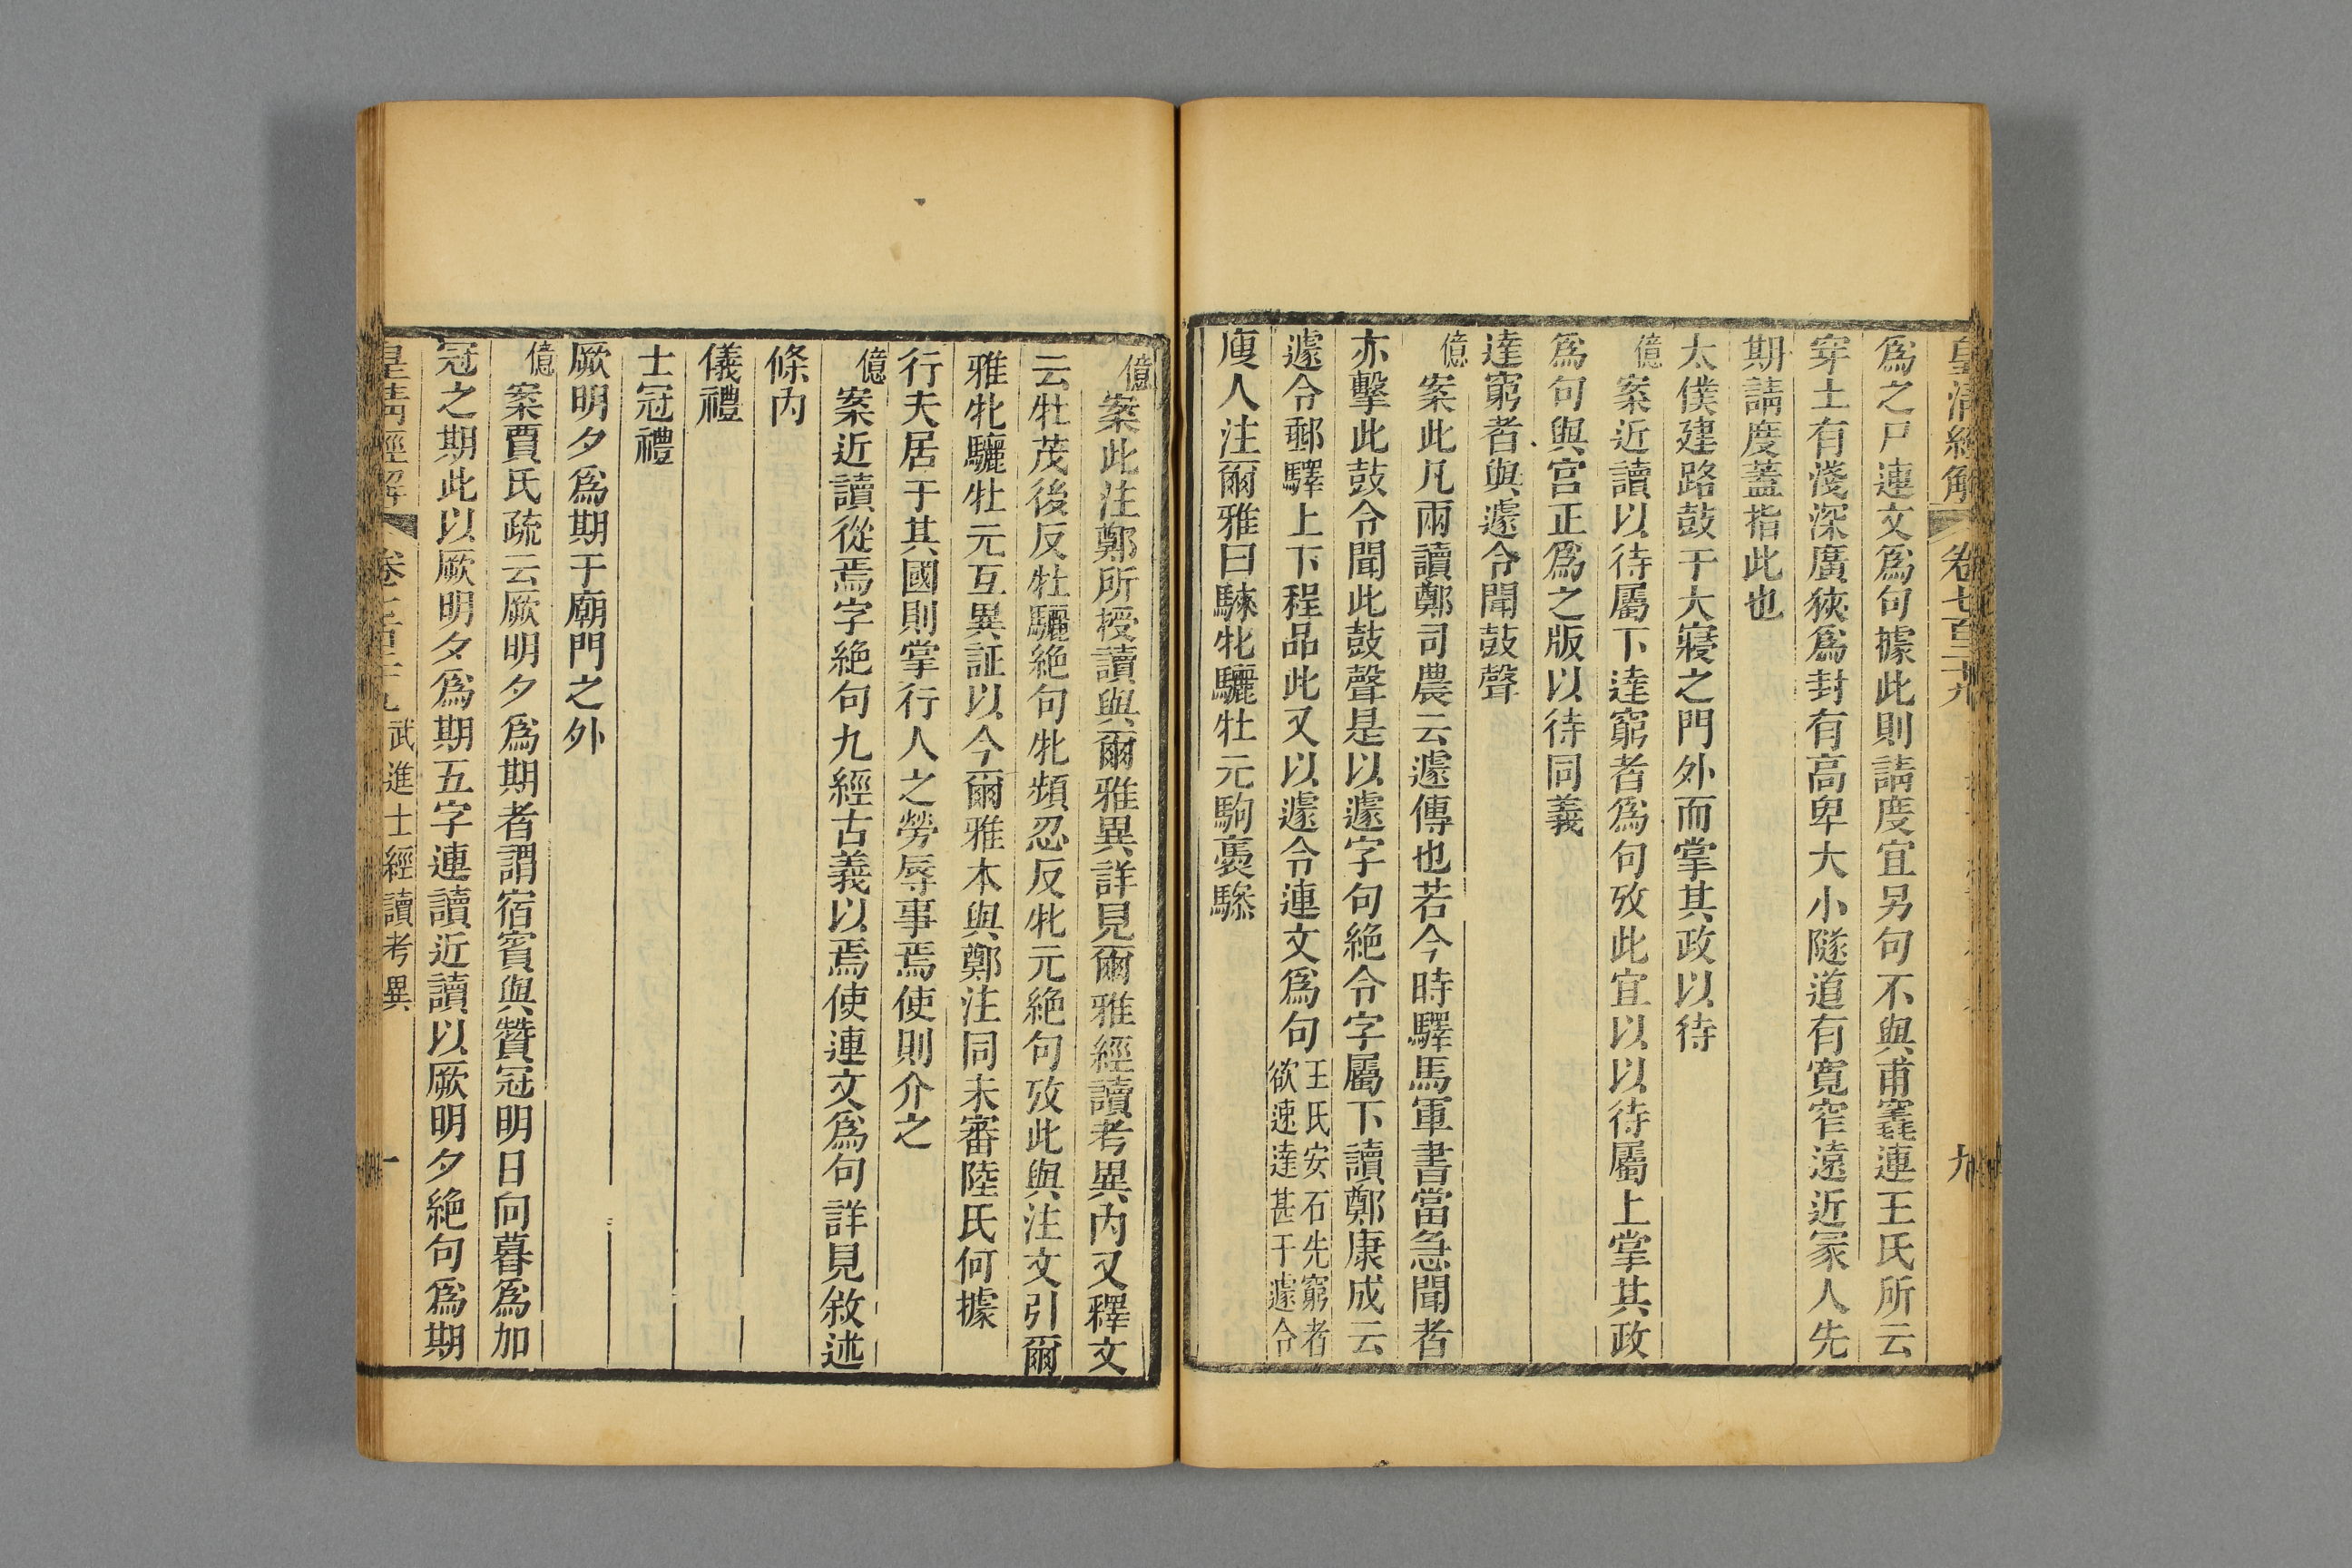 皇清經解 卷七百二十九 九
爲之尸連文爲句據此則請度宜另句不與甫竁連王氏所云
穿土有淺深廣狹爲封有高卑大小隧道有寬窄遠近冢人先
期請度蓋指此也
太僕建路鼓于大寢之門外而掌其政以待
億案近讀以待屬下達窮者爲句攷此宜以以待屬上掌其政
爲句與宫正爲之版以待同義
達窮者與遽令聞鼓聲
億案此凡兩讀鄭司農云遽傳也若今時驛馬軍書當急聞者
亦擊此鼓令聞此鼓聲是以遽字句絶令字屬下讀鄭康成云
遽令郵驛上下程品此又以遽令連文爲句王氏安石先窮者欲速達甚于遽令
廋人注爾雅曰騋牝驪牡元駒褭驂
億案此注鄭所授讀與爾雅異詳見爾雅經讀考異内又釋文
云牡茂後反牡驪絶句牝頻忍反牝元絶句攷此與注文引爾
雅牝驪牡元互異証以今爾雅本與鄭注同未審陸氏何據
行夫居于其國則掌行人之勞辱事焉使則介之
億案近讀從焉字絶句九經古義以焉使連文爲句詳見敘述
條内
儀禮
士冠禮
厥明夕爲期于廟門之外
億案賈氏疏云厥明夕爲期者謂宿賓與贊冠明日向暮爲加
冠之期此以厥明夕爲期五字連讀近讀以厥明夕絶句爲期
皇清經解 武進士經讀考異